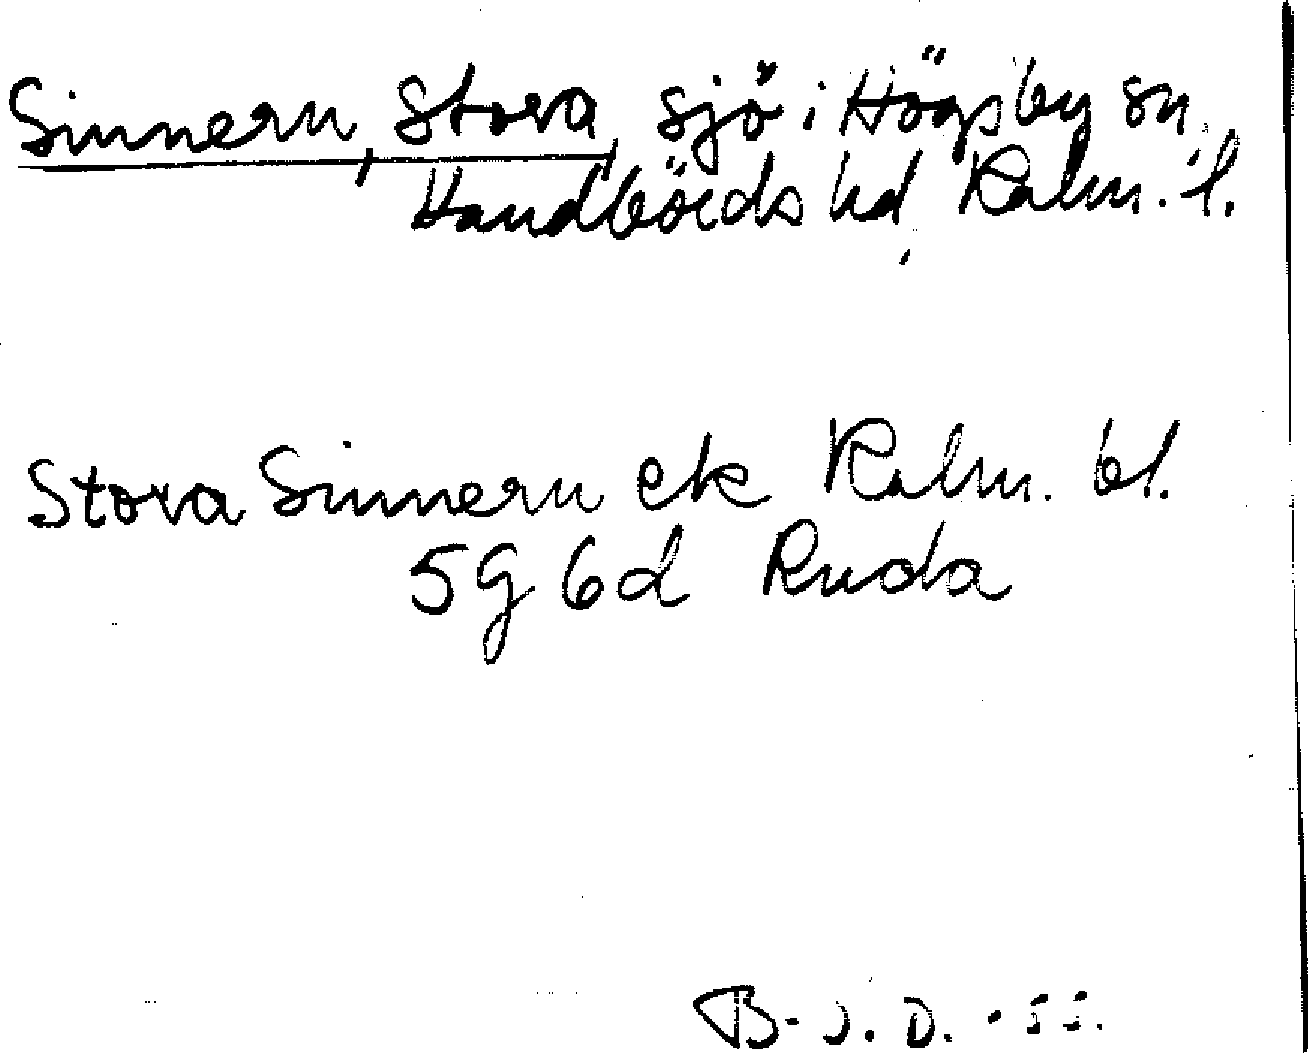 Sinnern, Stora, sjö i Högsby sn,
Handbörds hd, Kalm. l.
Stora Sinnern ek Kalm. bl.
5G 6d Ruda
B-J.D. -55.